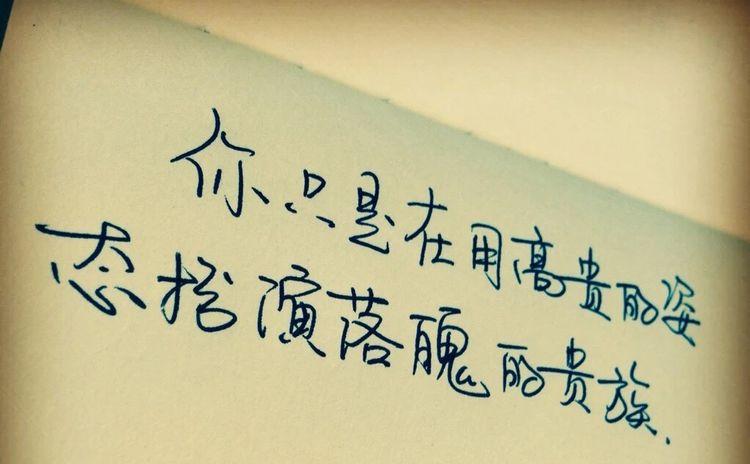 你只是在用高贵的姿
态扮演落魄的贵族.